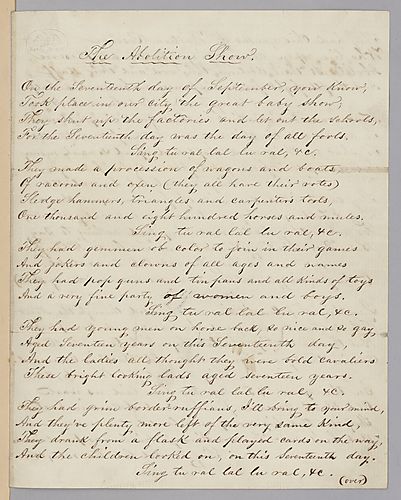 The Abolition Show.
On the Seventeenth day of September, you know,
Took place in our city the great baby show,
They shut up the factories and let out the schools,
For the Seventeenth day was the day of all fools.
Sing tu ral lal lu ral, &c.
They made a procession of wagons and boats,
Of racoons and oxen (they all have their votes)
Sledge hammers, triangles and carpenters tools,
One thousand and eight hundred horses and mules.
Sing tu ral lal lu ral, &c.
They had gemmen ob color to join in their games
And jokers and clowns of all ages and names
They had pop guns and tin pans and all kinds of toys
And a very fine party of women and boys.
Sing tu ral lal lu ral, &c.
They had young men on horse back, so nice and so gay,
Aged Seventeen years on this Seventeenth day,
And the ladies all thought they were bold Cavaliers
These bright looking lads aged seventeen years.
Sing tu ral lal lu ral, &c.
They had grim border ruffians, I'll bring to your mind,
And they've plenty more left of the very same kind,
They drank from a flask and played cards on the way,
And the children looked on, on this seventeenth day.
Sing tu ral lal lu ral, &c.
(over)